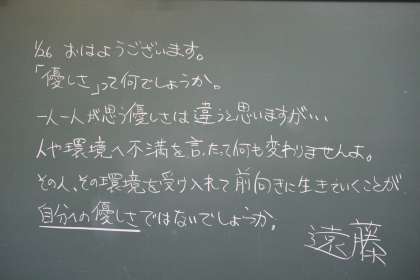 1/26 おはようございます。
「優しさ」って何でしょうか。
一人一人が思う優しさは違うと思いますが…
人や環境へ不満を言ったって何も変わりませんよ。
その人、その環境を受け入れて前向きに生きていくことが
自分への優しさではないでしょうか。
遠藤